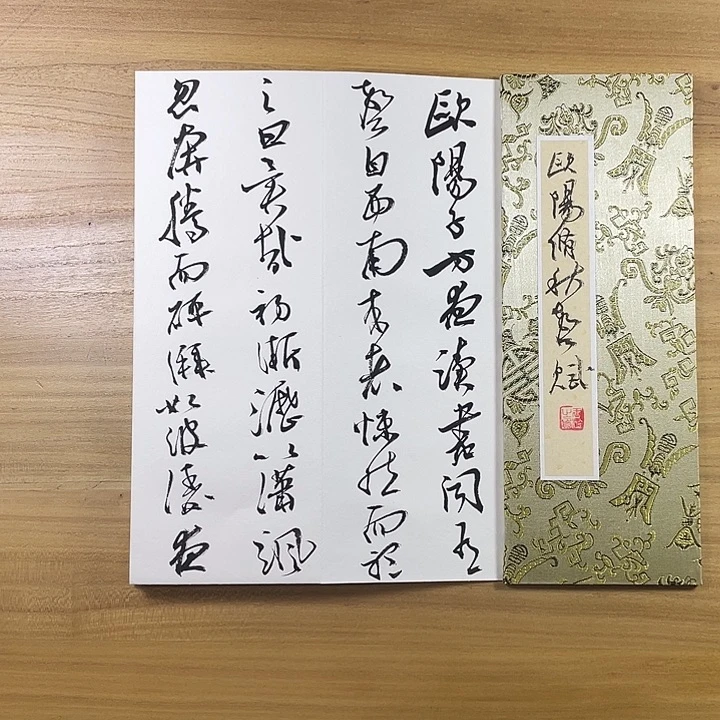 歐陽脩秋聲賦
歐陽子方夜讀書聞有
聲自西南來者悚然而聽
之曰異哉初淅瀝以瀟颯
忽奔騰而砰湃如波濤夜